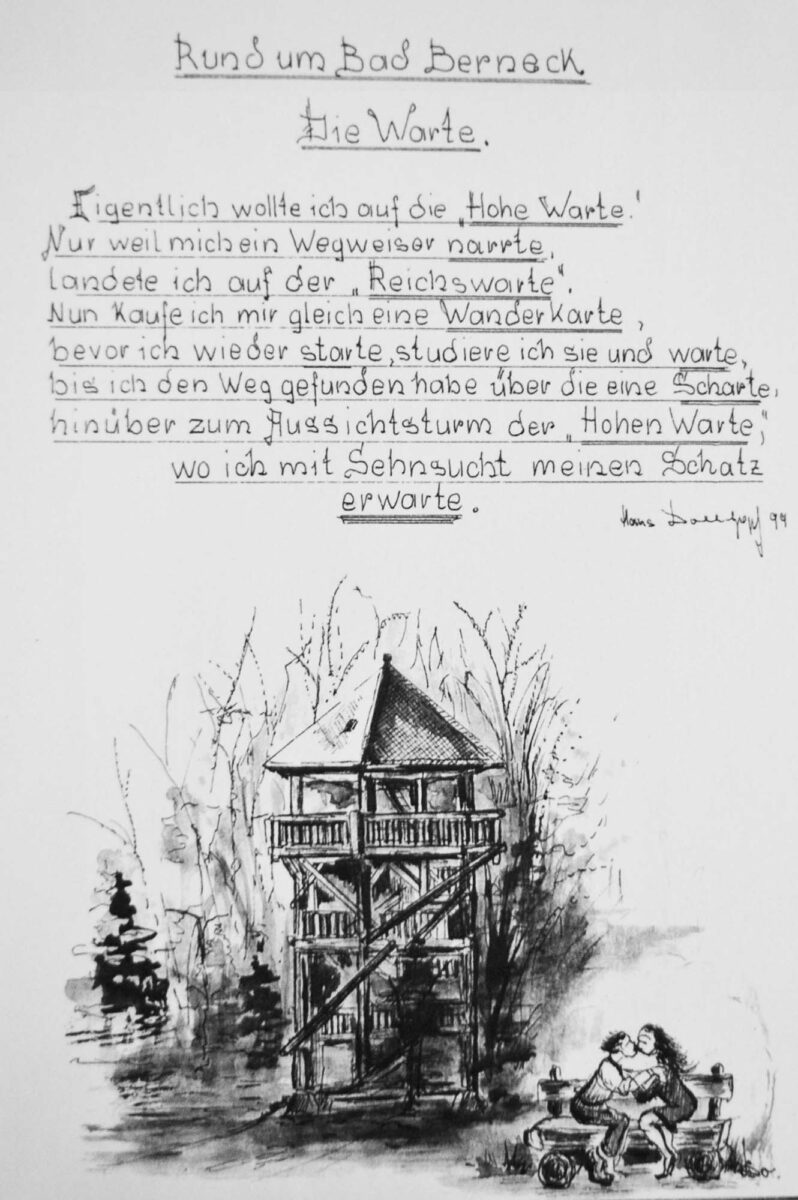 Rund um Bad Berneck
Die Warte.
Eigentlich wollte ich auf die „Hohe Warte."
Nur weil mich ein Wegweiser narrte,
landete ich auf der „Reichswarte".
Nun Kaufe ich mir gleich eine WanderKarte,
bevor ich wieder starte, studiere ich sie und warte,
bis ich den Weg gefunden habe über die eine Scharte,
hinüber zum Aussichtsturm der „Hohen Warte,"
wo ich mit Sehnsucht meinen Schatz
erwarte.
Hans 99